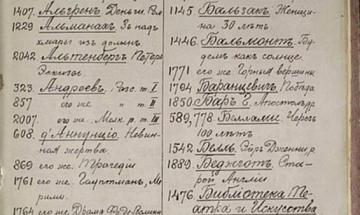 1407. Альгрен. Деньги
1229 Альманах. Знад
хмары из долин
2042. Альтенберг. Петера
Эскизы.
323. Андреев. Расс. т. I
857 его же т. II
2007. его же. Мелк. р. т. III
608. д'Аннунцiо. Невин-
ная жертва.
869 его же. Трагедiи
1761 его же. Гауптман, Ме-
1764 его же. Драма
1145. Бальзак. Женщи-
на 30 лѣтъ
1146. Бальмонт. Бу-
дем как солнце.
1771 его же. Горныя вершины
1794 Баранцевич. Победа
1850. Бар Г. Апостол др.
589,778 Беллами. Через
100 лѣтъ
1542 Белль. Джен
1889. Ста-
рой Англiи
1476. Библiотека Теа-
тра и Искусства